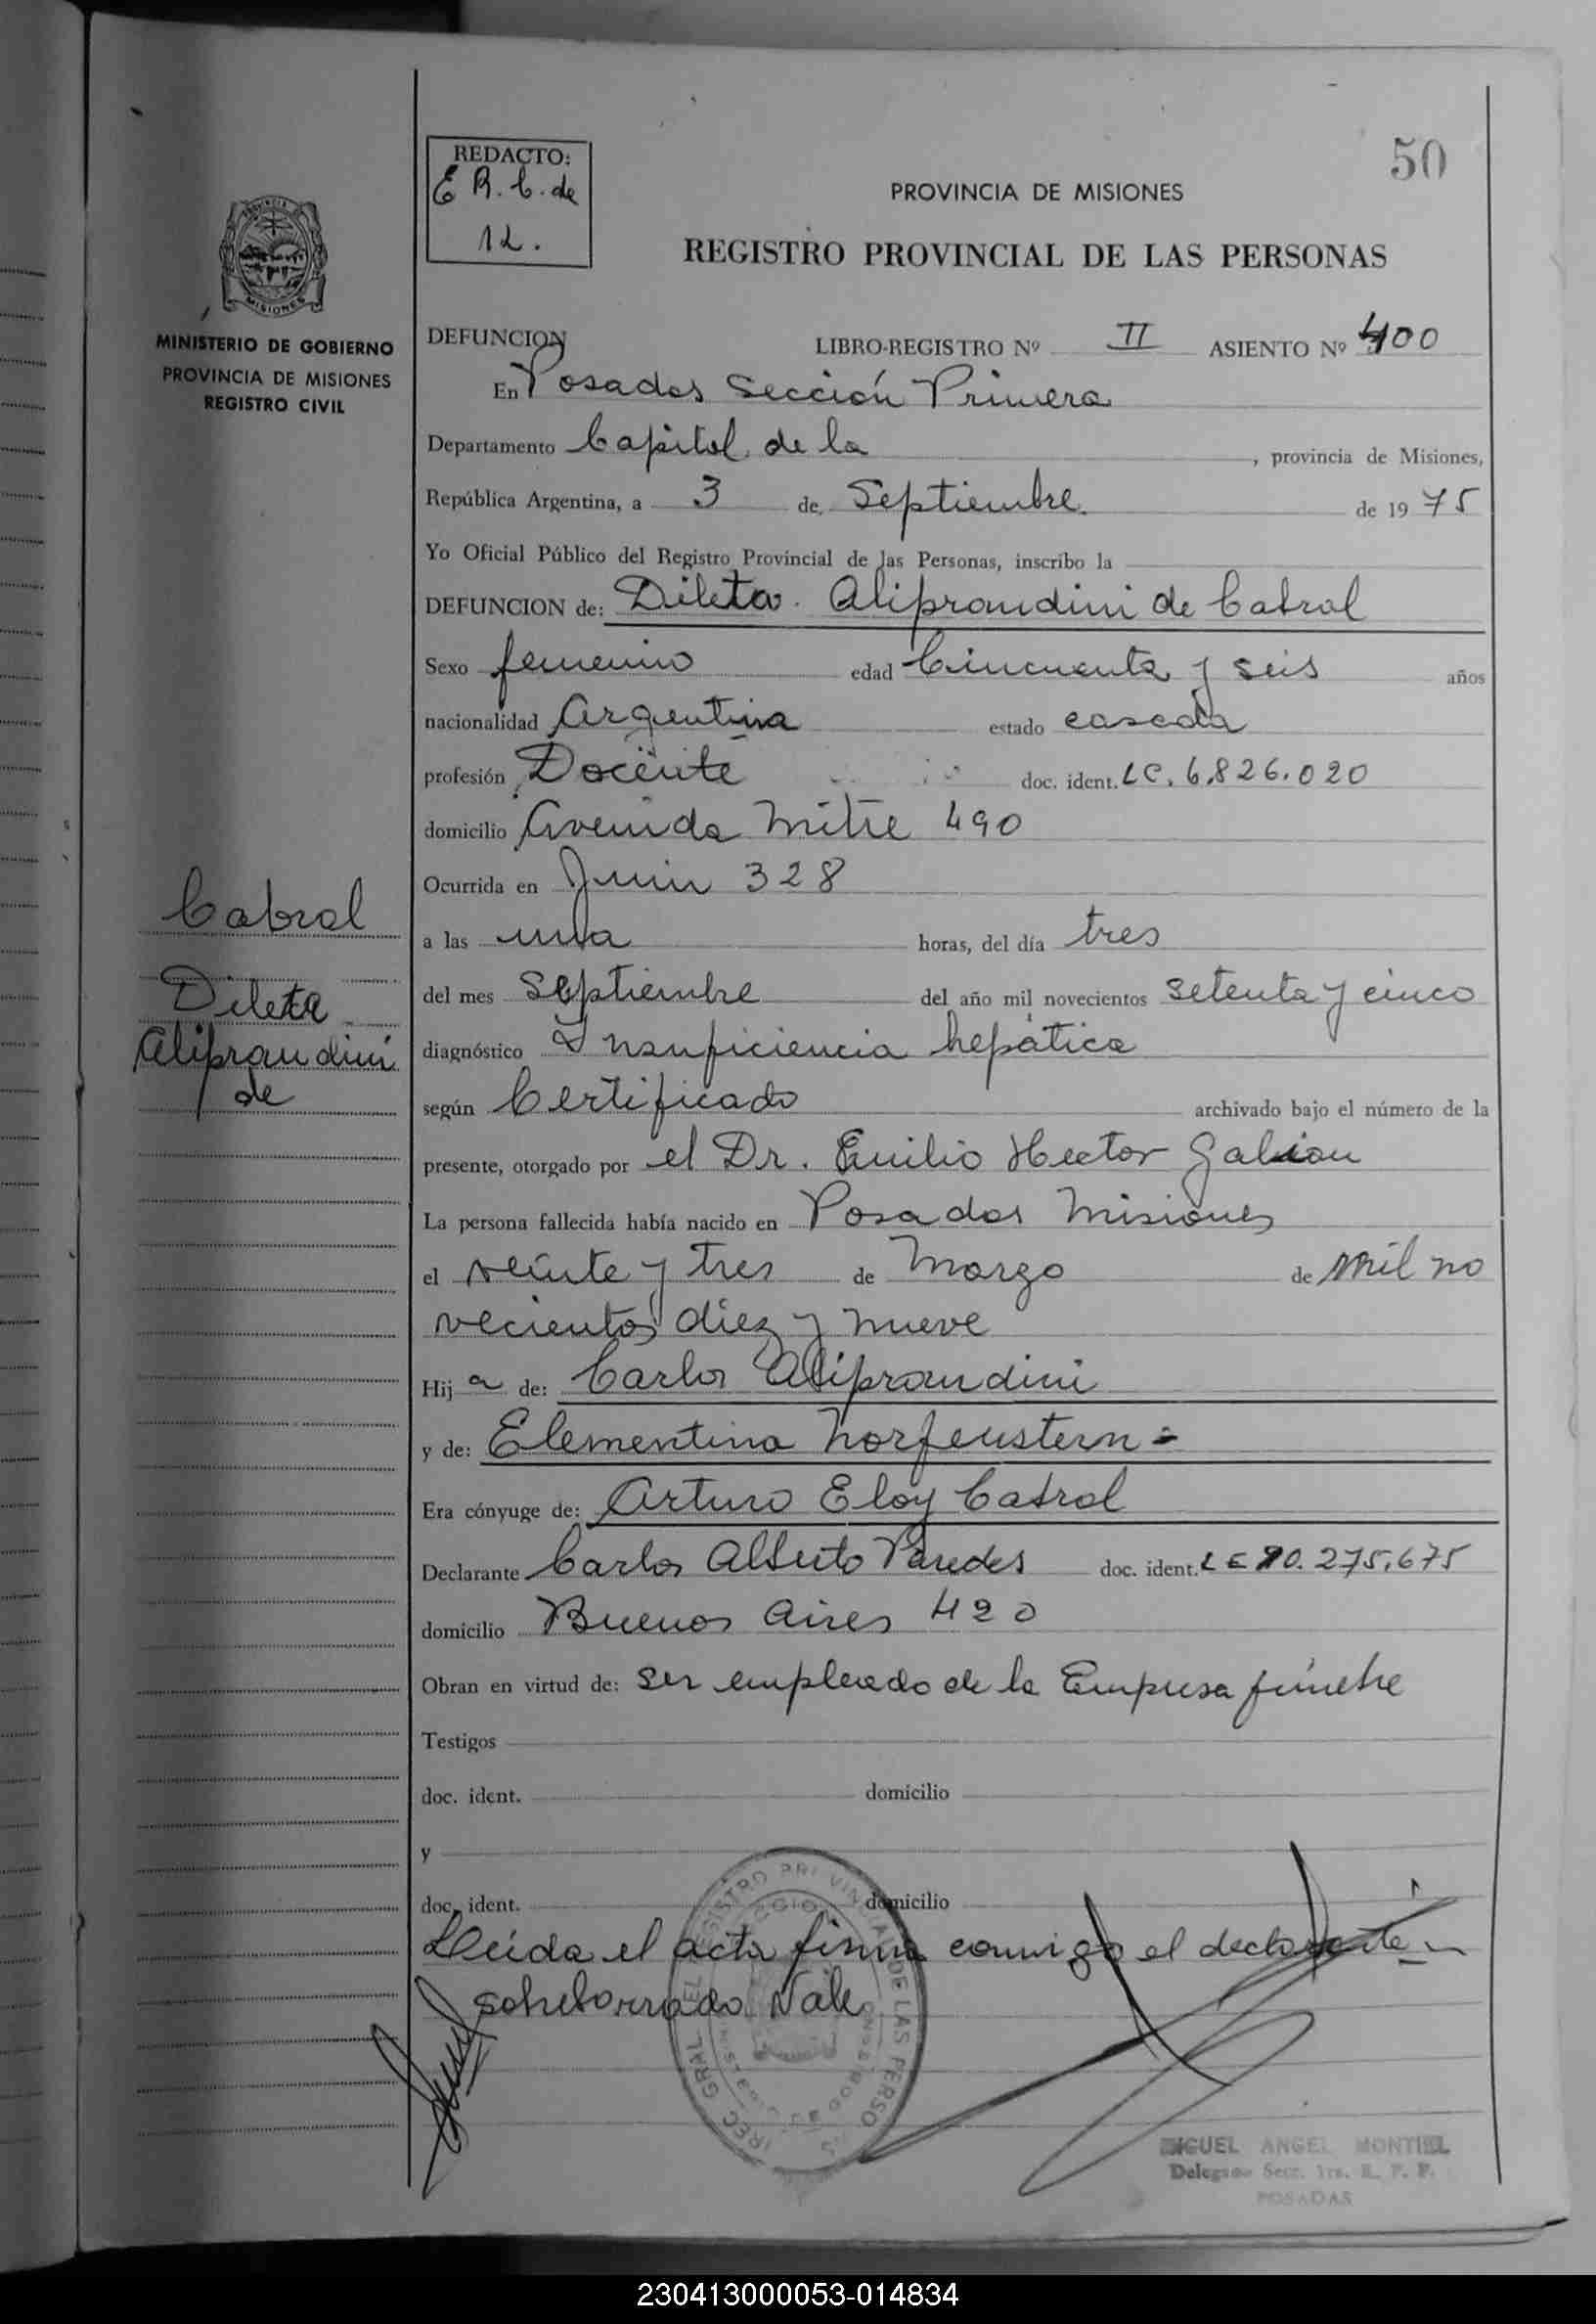 50
REDACTO:
E R. C. de
12.
PROVINCIA DE MISIONES
REGISTRO PROVINCIAL DE LAS PERSONAS
MISIONES
MINISTERIO DE GOBIERNO
PROVINCIA DE MISIONES
REGISTRO CIVIL
DEFUNCION LIBRO-REGISTRO Nº II ASIENTO Nº 400
En Posadas Sección Primera
Departamento Capital de la , provincia de Misiones,
República Argentina, a 3 de Septiembre de 1975
Yo Oficial Público del Registro Provincial de las Personas, inscribo la
DEFUNCION de: Dileta Aliprandini de Cabral
Sexo femenino edad Cincuenta y seis años
nacionalidad Argentina estado casada
profesión Docente doc. ident. LC. 6.826.020
domicilio Avenida Mitre 490
Ocurrida en Junin 328
a las una horas, del día tres
del mes Septiembre del año mil novecientos setenta y cinco
diagnóstico Insuficiencia hepática
según Certificado archivado bajo el número de la
presente, otorgado por el Dr. Emilio Hector Galian
La persona fallecida había nacido en Posadas Misiones
el veinte y tres de Marzo de mil no
vecientos diez y nueve
Hija de: Carlos Aliprandini
y de: Elementina Norfenstern =
Era cónyuge de: Arturo Eloy Cabral
Declarante Carlos Alberto Paredes doc. ident. LE 275.675
domicilio Buenos Aires 420
Obran en virtud de: ser empleado de la Empresa fúnebre
Testigos
doc. ident. domicilio
y
doc. ident. domicilio
Lleida el acta firma conmigo el declarante
sobreborrado Vale
Cabral
Dileta
Aliprandini
de
MIGUEL ANGEL MONTIEL
POSADAS
230413000053-014834